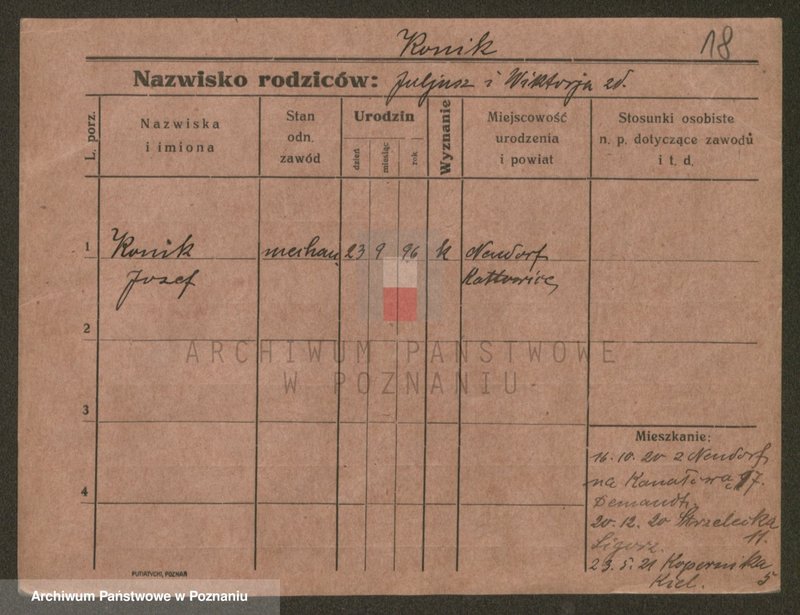 Konik 18
Nazwisko rodziców: Juljusz i Wiktorja zd.
L. porz.
Nazwiska
i imiona
Stan
odn.
zawód
Urodzin
dzień
miesiąc
rok
Wyznanie
Miejscowość
urodzenia
i powiat
Stosunki osobiste
n. p. dotyczące zawodů
i t. d.
1 Konik mechan 23 9 96 k Neudorf
Josef Kattowice
ARCHIWUM PAŃSTWOWE
W POZNANIU
2
3
4
Mieszkanie:
16.10.20 z Neudorf
na Kanałową 17.
Demandt
20.12.20 Strzelecka
11.
Ligorz.
23.5.21 Kopernika
5
Kiel.
PUTIATYCKI, POZNAŃ
Archiwum Państwowe w Poznaniu